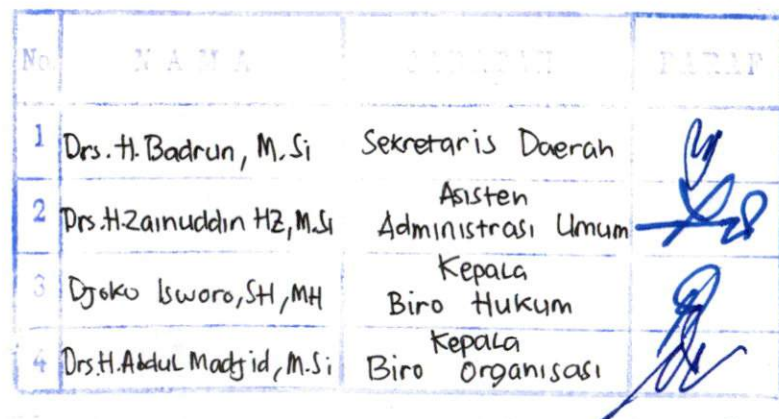 No. NAMA JABATAN PARAF
1 Drs. H. Badrun, M.Si Sekretaris Daerah
2 Drs.H.Zainuddin HZ, M.Si Asisten
Administrasi Umum
3 Djoko Isworo, SH, MH Kepala
Biro Hukum
4 Drs.H.Abdul Madjid, M.Si Kepala
Biro Organisasi